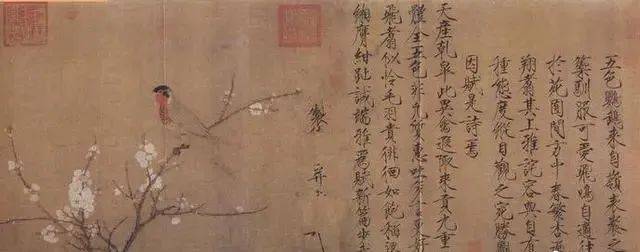 五色鸚鵡來自嶺表養之
籞馴服可愛飛鳴自適往
於苑囿間方中春繁杏遍
翔翥其上雅詫容與自有
種態度縱目觀之宛勝圖
因賦是詩焉
天產乾皋此異禽遐陬來貢九重
體全五色非凡質惠吐多言更好
飛翥似憐毛羽貴徘徊如飽稻
緗膺紺趾誠端雅為賦新篇步
製 并